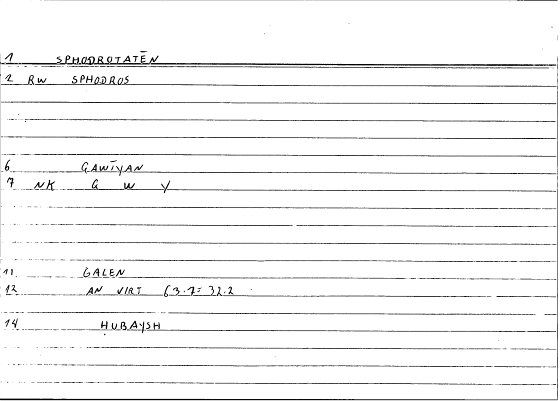 1 SPHODROTATĒN
2 RW SPHODROS
6 GAWĪYAN
7 NK G W Y
11 GALEN
12 AN VIRT 63.7=32.2
14 HUBAYSH